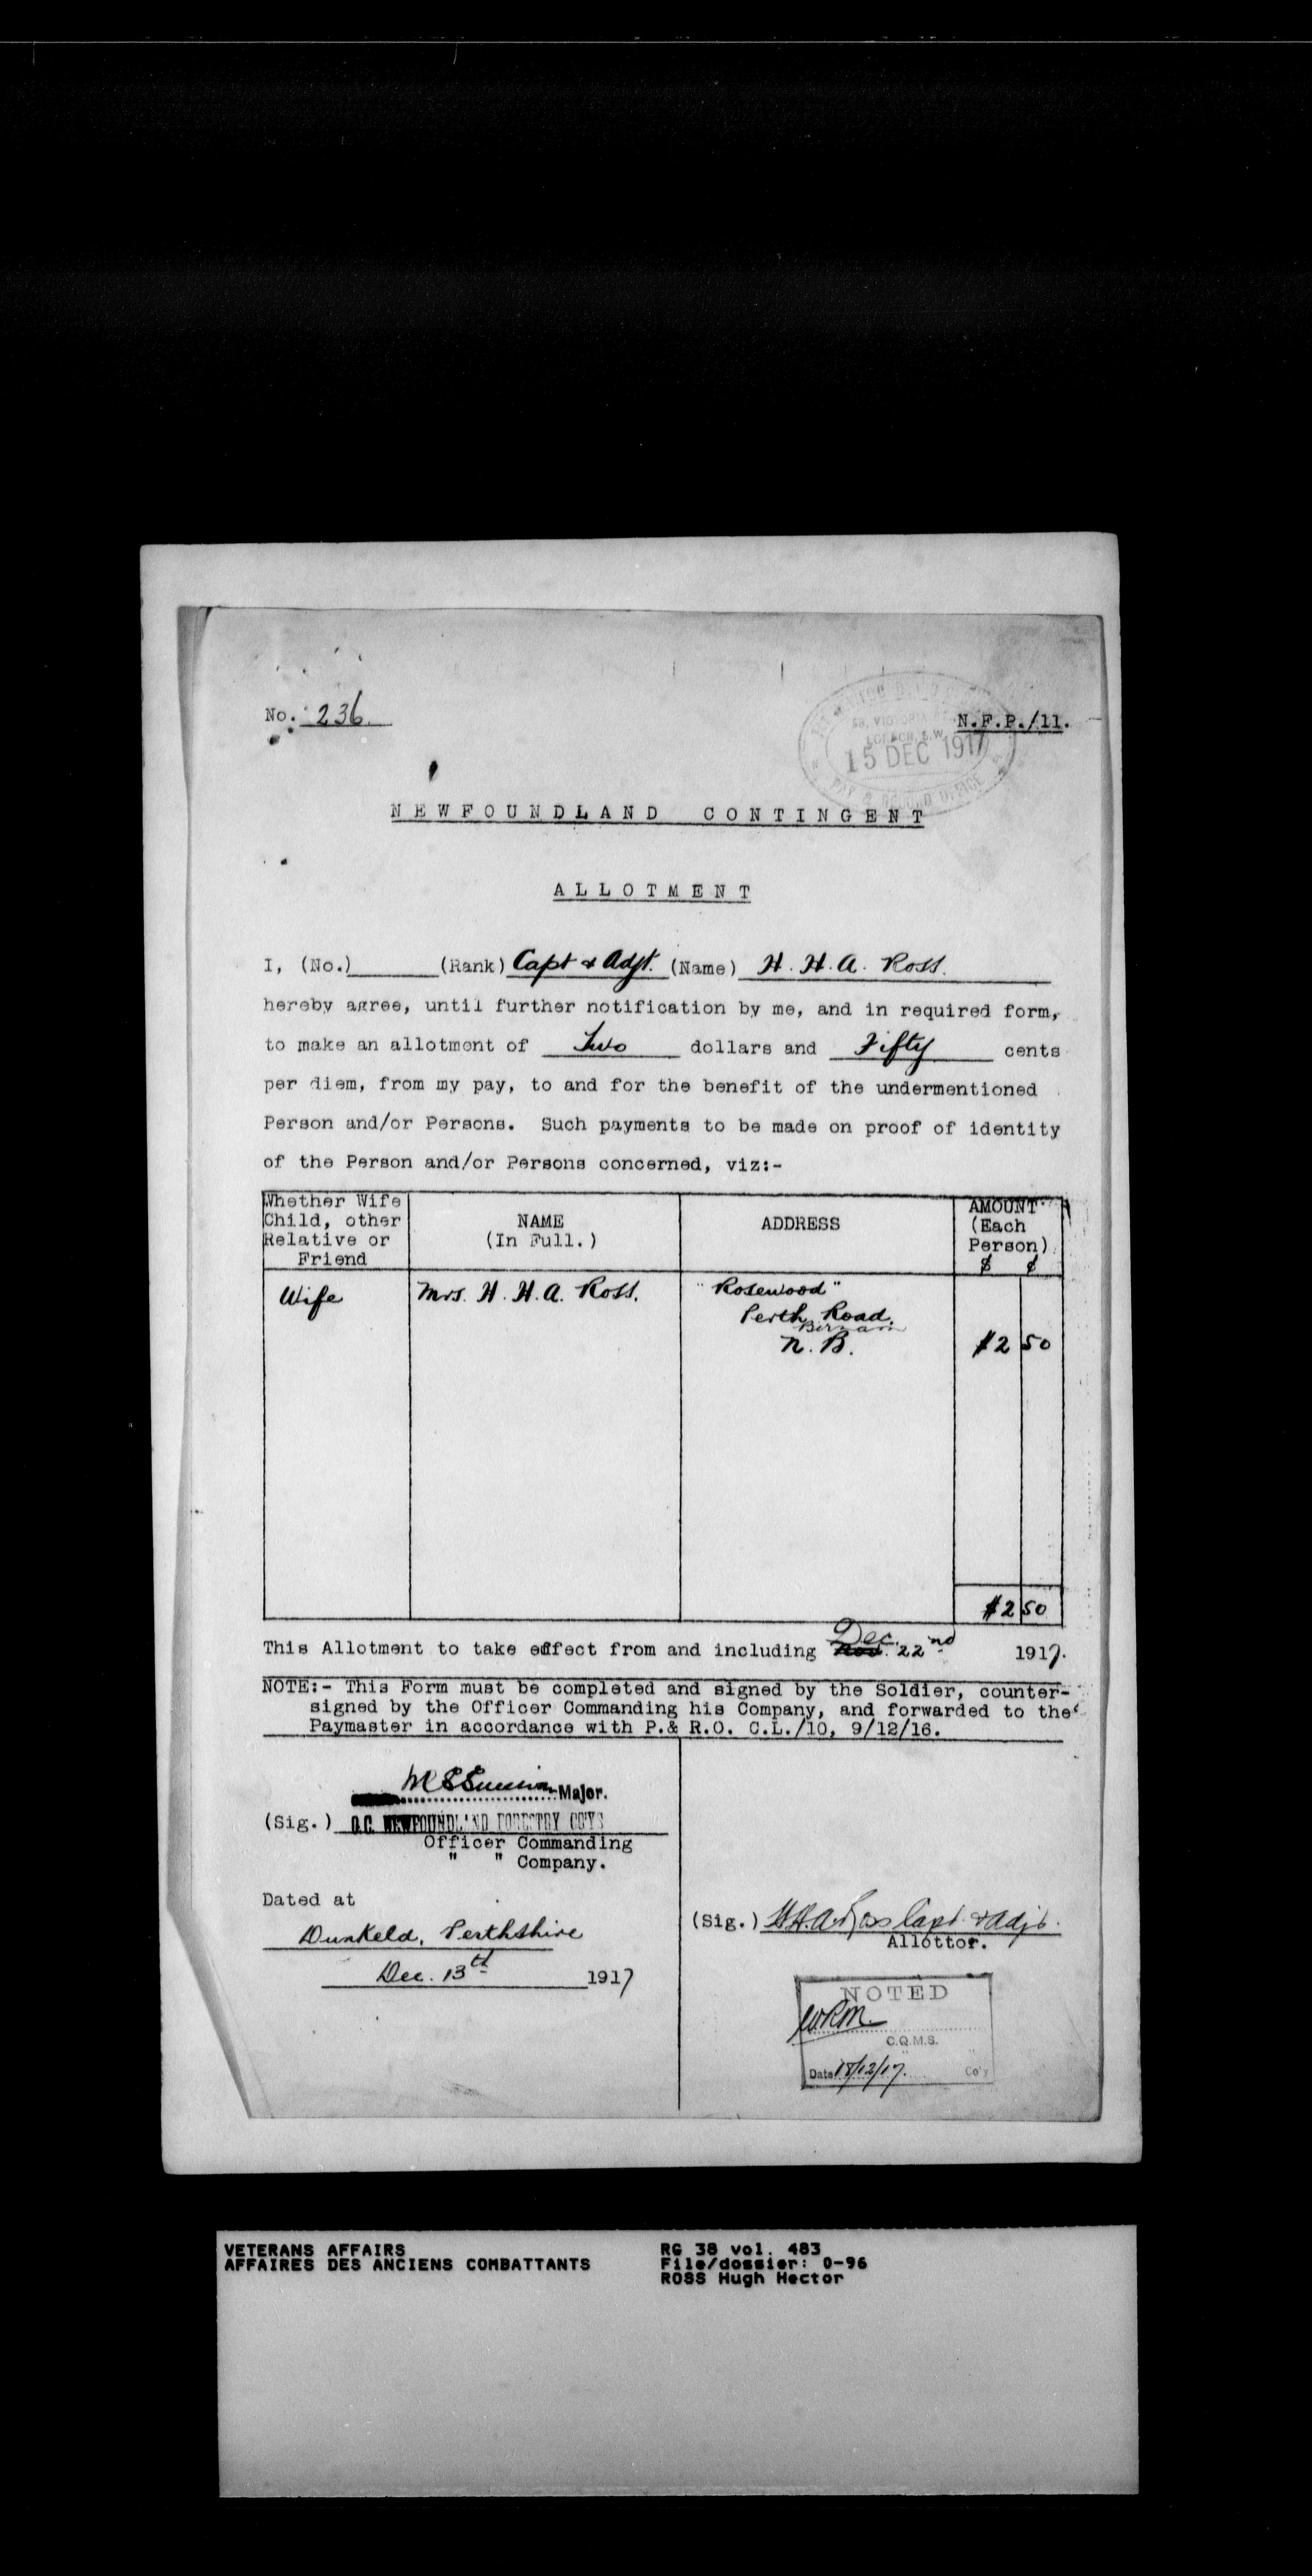 No. 236.
N.F.P./11.
58, VICTORIA ST.
LONDON, S.W.
15 DEC 1917
PAY & RECORD OFFICE
NEWFOUNDLAND CONTINGENT
ALLOTMENT
I, (No.) (Rank) Capt & Adjt. (Name) H. H. A. Ross.
hereby agree, until further notification by me, and in required form,
to make an allotment of Two dollars and Fifty cents
per diem, from my pay, to and for the benefit of the undermentioned
Person and/or Persons. Such payments to be made on proof of identity
of the Person and/or Persons concerned, viz:-
Whether Wife
Child, other
Relative or
Friend
NAME
(In Full.)
ADDRESS
AMOUNT
(Each
Person)
$ ¢
Wife Mrs. H. H. A. Ross. "Rosewood"
Perth Road.
Birnam
N. B. $2 50
$2 50
This Allotment to take effect from and including Dec. Nov. 22nd 1917.
NOTE:- This Form must be completed and signed by the Soldier, counter-
signed by the Officer Commanding his Company, and forwarded to the
Paymaster in accordance with P.& R.O. C.L./10, 9/12/16.
Major.
(Sig.) O.C. NEWFOUNDLAND FORESTRY COYS
Officer Commanding
" " Company.
Dated at
Dunkeld, Perthshire
Dec. 13th 1917
(Sig.) H.H.A. Ross Capt & Adjt.
Allottor.
NOTED
W.R.M.
C.Q.M.S.
Date 18/12/17. Co'y
VETERANS AFFAIRS
AFFAIRES DES ANCIENS COMBATTANTS
RG 38 vol. 483
File/dossier: 0-96
ROSS Hugh Hector